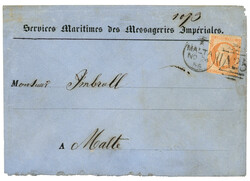 1093
Services Maritimes des Messageries Impériales.
MALTA
A25
Monsieur Imbroll
A Malte